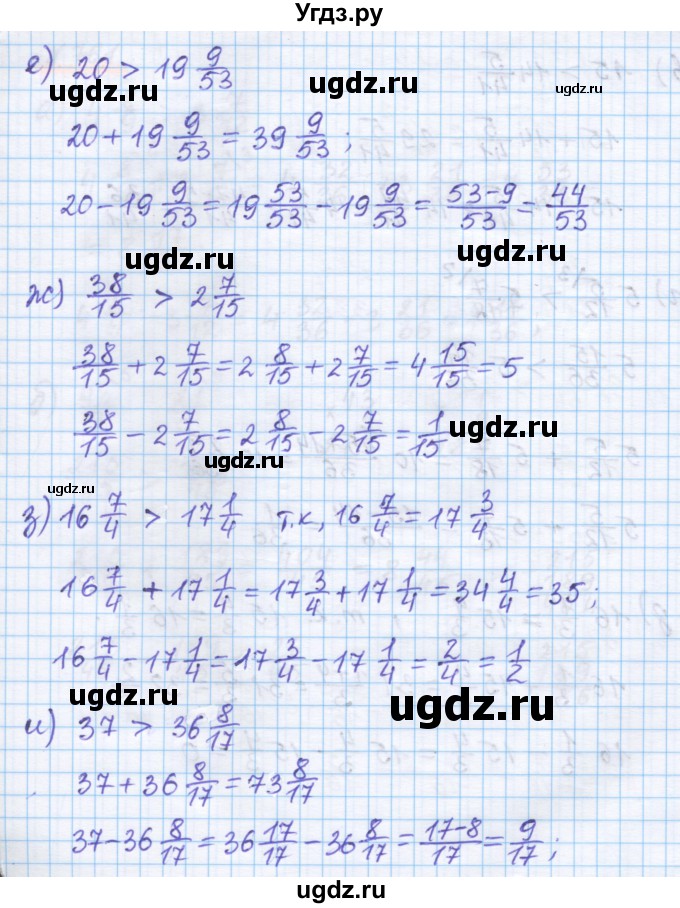 Угдз.ру
е) 20 > 19 9/53
ugdz.ru ugdz.ru ugdz.ru
20 + 19 9/53 = 39 9/53 ;
20 - 19 9/53 = 19 53/53 - 19 9/53 = (53-9)/53 = 44/53
ugdz.ru ugdz.ru
ж) 38/15 > 2 7/15
38/15 + 2 7/15 = 2 8/15 + 2 7/15 = 4 15/15 = 5
38/15 - 2 7/15 = 2 8/15 - 2 7/15 = 1/15
ugdz.ru
ugdz.ru
ugdz.ru
з) 16 7/4 > 17 1/4 т.к, 16 7/4 = 17 3/4
16 7/4 + 17 1/4 = 17 3/4 + 17 1/4 = 34 4/4 = 35 ;
16 7/4 - 17 1/4 = 17 3/4 - 17 1/4 = 2/4 = 1/2
ugdz.ru ugdz.ru
и) 37 > 36 8/17
37 + 36 8/17 = 73 8/17
37 - 36 8/17 = 36 17/17 - 36 8/17 = (17-8)/17 = 9/17 ;
ugdz.ru